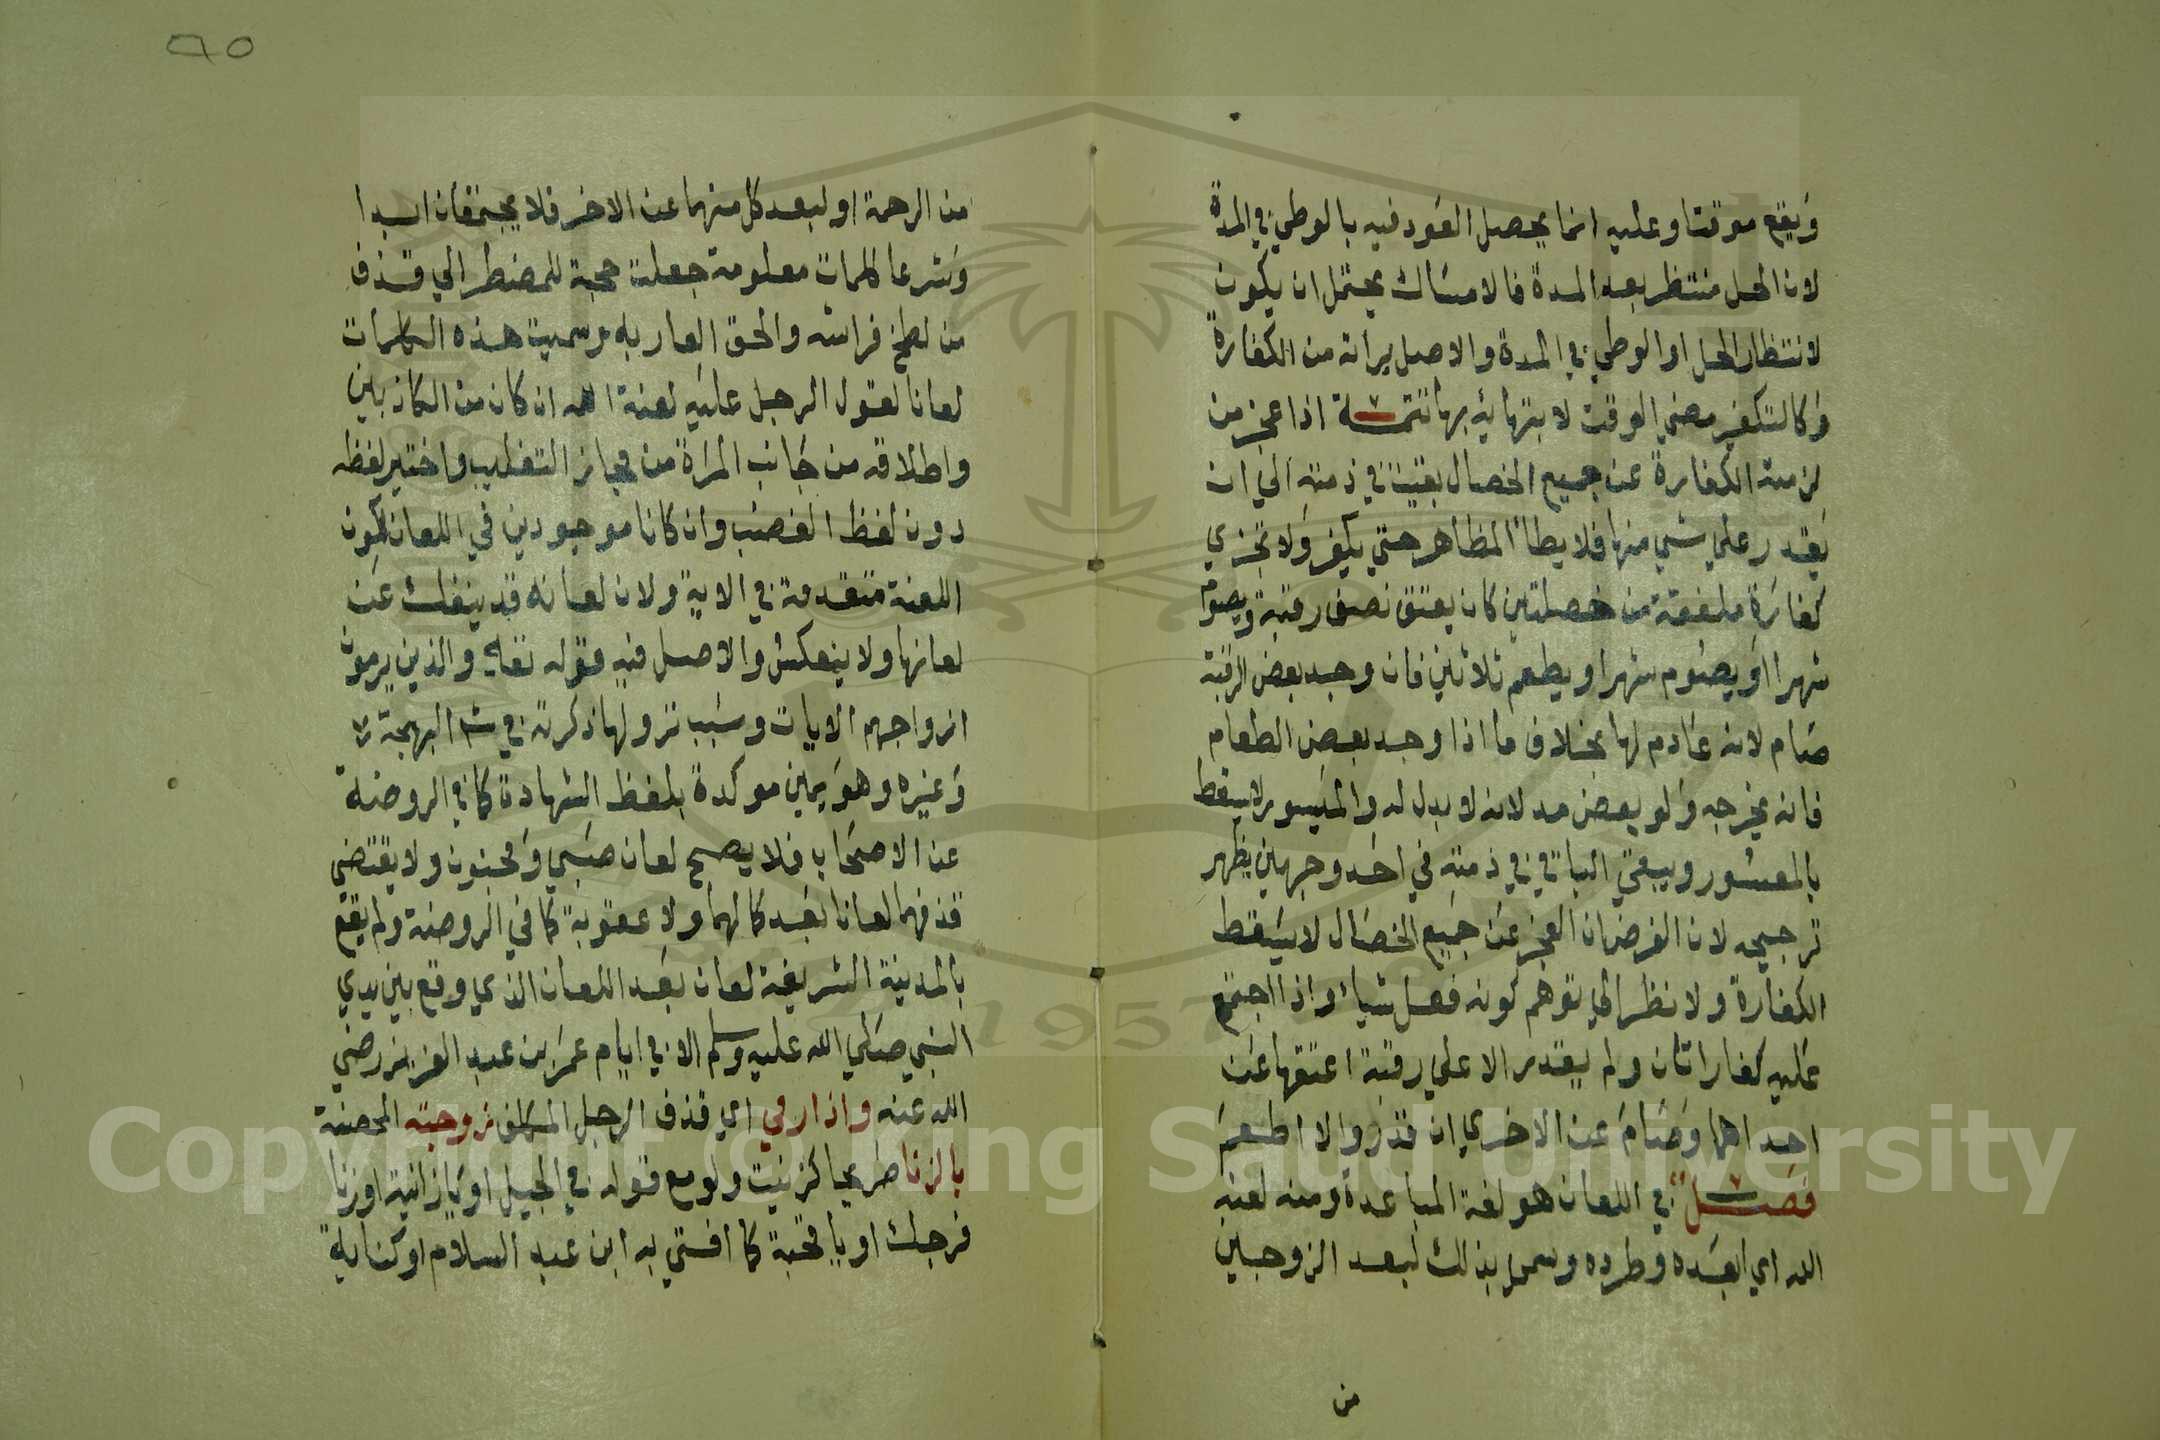 ويقع موقتا وعليه انما يحصل العود فيه بالوطي في المدة
لان الحل منتظر بعد المدة فالامساك يحتمل ان يكون
لانتظار الحل او الوطي في المدة والاصل براته من الكفارة
وكالتكفير مضي الوقت لانتهائه بها تتمة اذا عجز من
لزمته الكفارة عن جميع الخصال بقيت في ذمته الي ان
يقدر علي شي منها فلا يطا المظاهر حتي يكفر ولا تجزي
كفارة ملفقة من خصلتين كان يعتق نصف رقبة ويصوم
شهرا او يصوم شهرا ويطعم ثلاثين فان وجد بعض الرقبة
صام لانه عادم لها بخلاف ما اذا وجد بعض الطعام
فانه يخرجه ولو بعض مد لانه لا بدل له والميسور لا يسقط
بالمعسور ويبقي الباقي في ذمته في احد وجهين يظهر
ترجيحه لان الفرض ان العجز عن جميع الخصال لا يسقط
الكفارة ولا نظر الي توهم كونه فعل شيا واذا اجتمع
عليه كفاراتان ولم يقدر الا علي رقبة اعتقها عن
احداهما وصام عن الاخري ان قدر والا اطعم
فصل في اللعان هو لغة المباعدة ومنه لعنه
الله اي ابعده وطرده وسمي بذلك لبعد الزوجين
من
٩٥
من الرحمة او لبعد كل منهما عن الاخر فلا يجتمعان ابدا
وشرعا كلمات معلومة جعلت حجة للمضطر الي قذف
من لطخ فراشه والحق العار به وسميت هذه الكلمات
لعانا لقول الرجل عليه لعنة الله ان كان من الكاذبين
واطلاقه من جانب المراة من مجاز التغليب واختير لفظه
دون لفظ الغضب وان كانا موجودين في اللعان لكون
اللعنة متقدمة في الاية ولان لعانه قد ينفك عن
لعانها ولا ينعكس والاصل فيه قوله تعالي والذين يرمون
ازواجهم الايات وسبب نزولها ذكرته في شرح البهجة
وغيره وهو يمين موكدة بلفظ الشهادة كما في الروضة
عن الاصحاب فلا يصح لعان صبي ومجنون ولا يقتضي
قذفهما لعانا بعد كمالهما ولا عقوبة كما في الروضة ولم يقع
بالمدينة الشريفة لعان بعد اللعان الذي وقع بين يدي
النبي صلي الله عليه وسلم الا في ايام عمر بن عبد العزيز رضي
الله عنه واذا رمي اي قذف الرجل المكلف زوجته المحصنة
بالزنا صريحا كزنيت ولو مع قوله في الجبل او يا زانية او زنا
فرجك او يا قحبة كما افتي به ابن عبد السلام او كناية
Copyright © King Saud University
1957